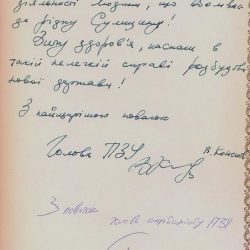 діяльності людини, що
до рідну Сумщину!
Зичу здоров'я, наснаги в
такій нелегкій справі розбудови
нової держави!
З найщирішою повагою
Голова ПЗУ
В. Коноп
З повагою
голова
ПЗУ